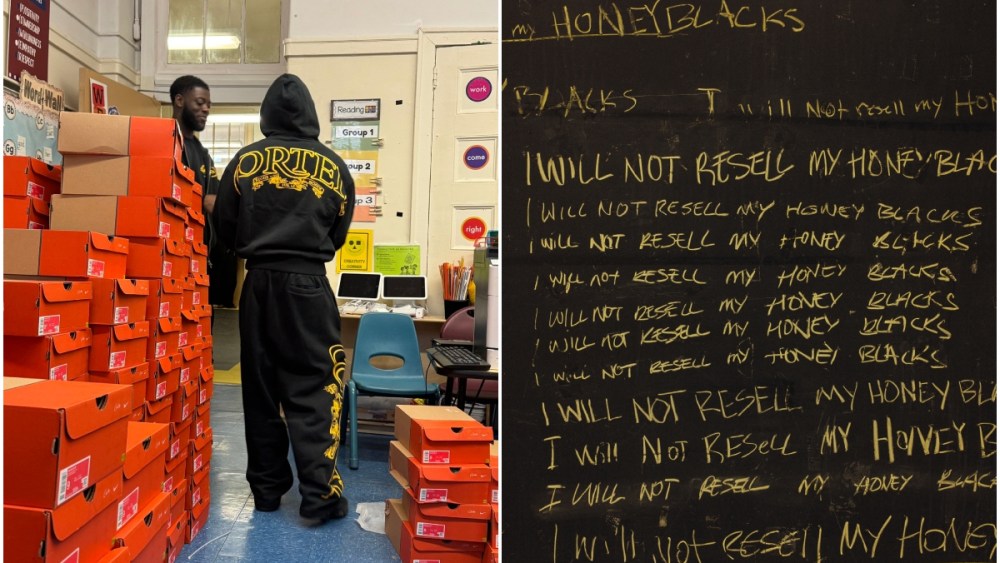 POSITIVITY
OWNERSHIP
KINDNESS
EMPATHY
RESPECT
Word Wall
Bb
Cc
Gg
Reading
Group 1
Group 2
3
work
come
right
ORTE
my HONEYBLACKS
BLACKS I will Not resell my HON
I WILL NOT RESELL MY HONEY BLAC
I WILL NOT RESELL MY HONEY BLACKS
I WILL NOT RESELL MY HONEY BLACKS
I will not RESELL my HONEY BLACKS
I WILL NOT RESELL MY HONEY BLACKS
I WILL NOT RESELL MY HONEY BLACKS
I will NOT RESELL MY HONEY BLACKS
I WILL NOT RESELL MY HONEY BLA
I Will Not Resell MY HONEY B
I WILL NOT RESELL MY HONEY BLACK
I will Not RESEll MY HONEY